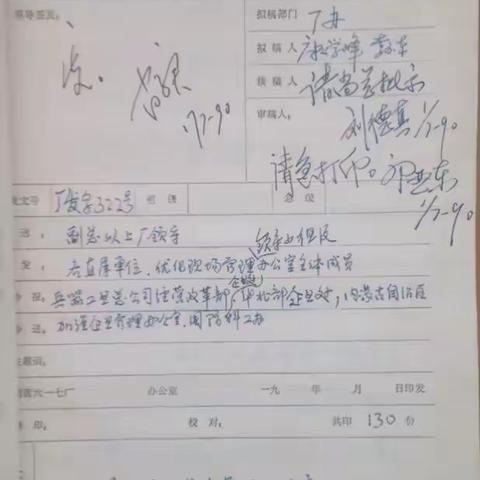 领导签发：
发。
1/7-90
拟稿部门 厂办
拟稿人
核稿人 请尚总批示
审稿人：
刘德真 1/7-90
请急打印。
1/7-90
发文号 厂发字322号 密级 急级
送： 副总以上厂领导 领导小组及
发： 各直属单位、优化现场管理办公室主体成员
报： 兵器工业总公司经营改革部、华北部企业处、内蒙古自治区
企管
送： 加强企业管理办公室、国防科工办
主题词：
国营六一七厂 办公室 一九 年 月 日印发
印： 校对： 共印 130 份